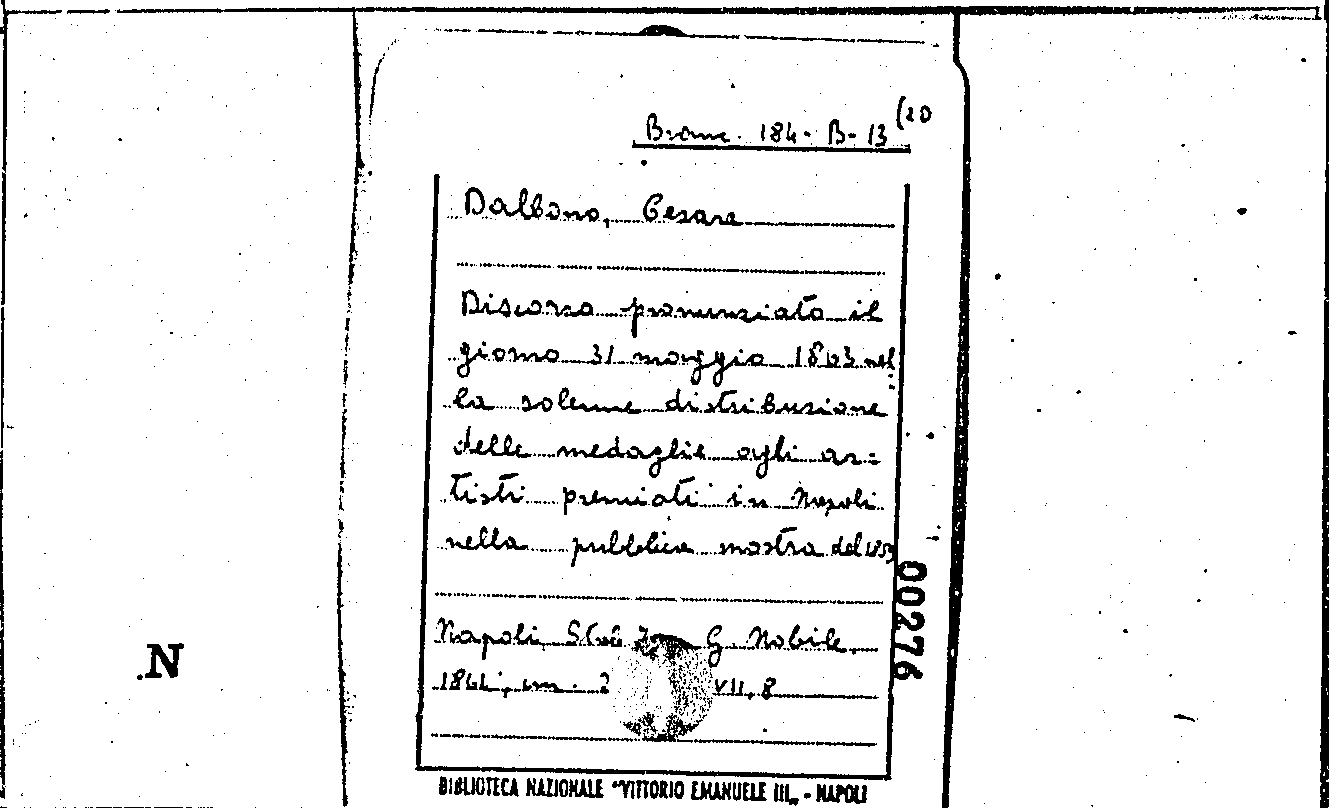 Branc. 184- B- 13 (20
Dalbono, Cesare
Discorso pronunziato il
giorno 31 maggio 1803 nel
la solenne distribuzione
delle medaglie agli ar=
tisti premiati in Napoli
nella pubblica mostra del
00276
Napoli, G. Nobile,
cm. 2 VII, 8
.N
BIBLIOTECA NAZIONALE "VITTORIO EMANUELE III„ - NAPOLI